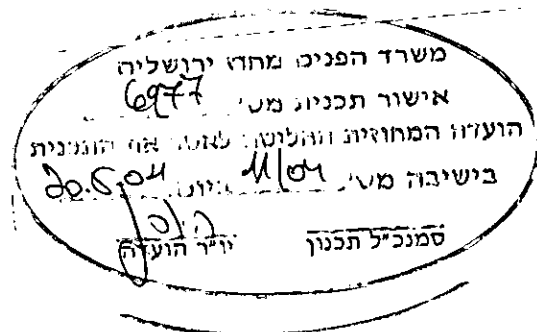 משרד הפנים מחוז ירושלים
אישור תכנית מס' 6977
הועדה המחוזית החליטה לאשר את התכנית
בישיבה מס' 11/04 ביום 20.5.04
סמנכ"ל תכנון יו"ר הועדה